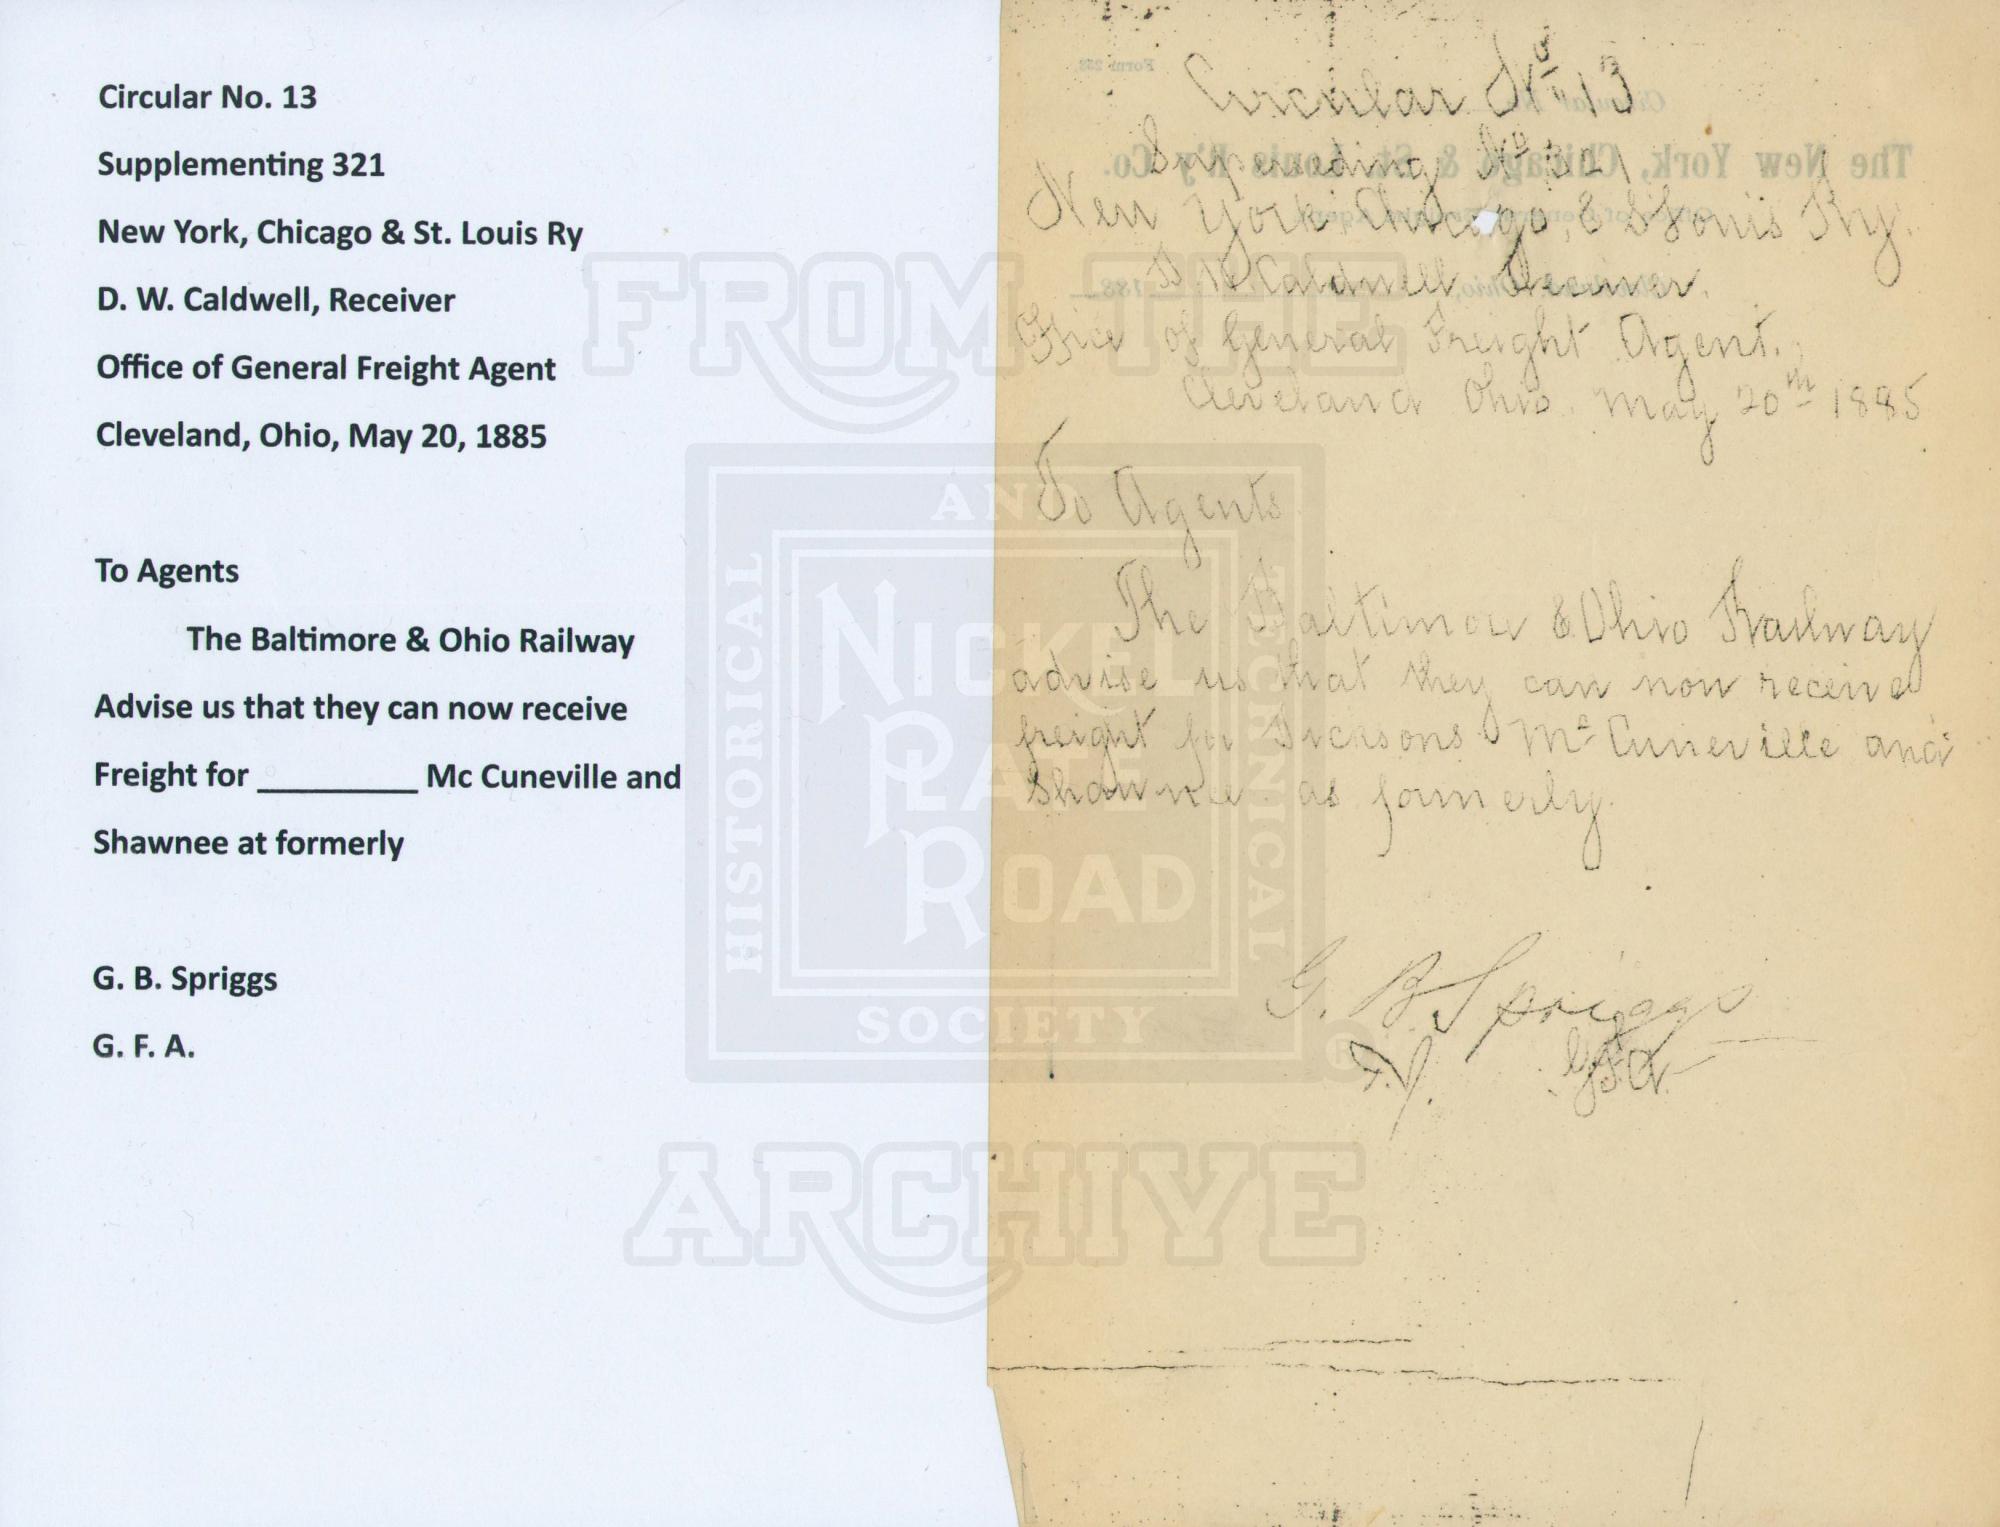 Circular No. 13
Supplementing 321
New York, Chicago & St. Louis Ry
D. W. Caldwell, Receiver
Office of General Freight Agent
Cleveland, Ohio, May 20, 1885
To Agents
The Baltimore & Ohio Railway
Advise us that they can now receive
Freight for __________ Mc Cuneville and
Shawnee at formerly
G. B. Spriggs
G. F. A.
Form 253.
Circular No 13
Superseding No 321
The New York, Chicago & St. Louis R'y Co.
New York, Chicago, & St Louis Ry.
D W Caldwell Receiver.
188
Office of General Freight Agent.
Cleveland Ohio. May 20th 1885
To Agents.
The Baltimore & Ohio Railway
advise us that they can now receive
freight for Mc Cuneville and
Shawnee as formerly.
G. B. Spriggs
G.F.A.
FROM THE
HISTORICAL AND TECHNICAL SOCIETY
NICKEL PLATE ROAD
®
ARCHIVE